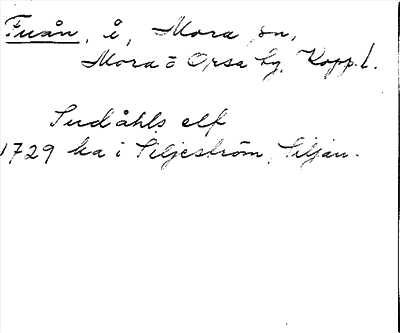 Fuån, å, Mora sn,
Mora o Orsa tg. Kopp. l.
Sudåhls elf
1729 ka i Siljeström, Siljan.